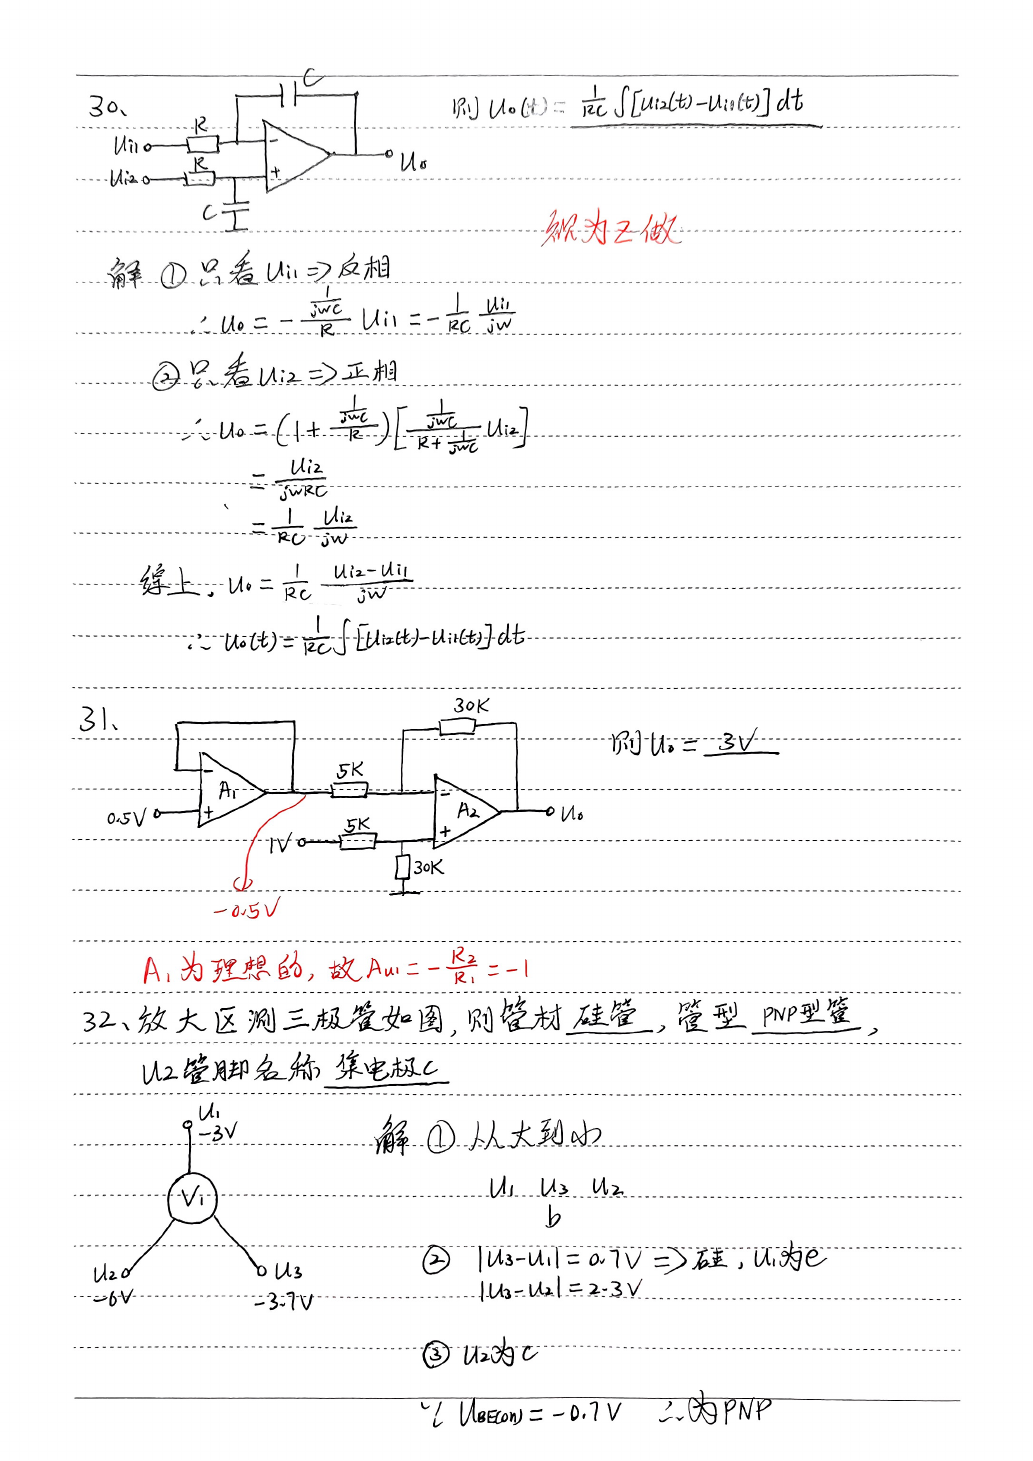 30、
C
R
Ui1
R
Ui2
C
U₀
则 U₀(t) = 1/RC ∫[Ui2(t)-Ui1(t)]dt
视为Z做
解 ① 只看 Ui1 => 反相
∴ U₀ = - (1/jwC)/R Ui1 = - 1/RC Ui1/jw
② 只看 Ui2 => 正相
∴ U₀ = (1 + (1/jwC)/R) [(1/jwC)/(R + 1/jwC) Ui2]
= Ui2/jwRC
= 1/RC Ui2/jw
综上, U₀ = 1/RC (Ui2-Ui1)/jw
∴ U₀(t) = 1/RC ∫[Ui2(t)-Ui1(t)]dt
31、
30K
5K
A₁
0.5V
5K
1V
A₂
30K
U₀
-0.5V
则 U₀ = 3V
A₁为理想的, 故 Au1 = - R₂/R₁ = -1
32、放大区测三极管如图, 则管材 硅管, 管型 PNP型管,
U2管脚名称 集电极C
U₁
-3V
V₁
U2
-6V
U3
-3.7V
解 ① 从大到小
U₁ U3 U2
b
② |U3-U1| = 0.7V => 硅, U₁为e
|U3-U2| = 2.3V
③ U2为C
∵ UBE(on) = -0.7V ∴为PNP